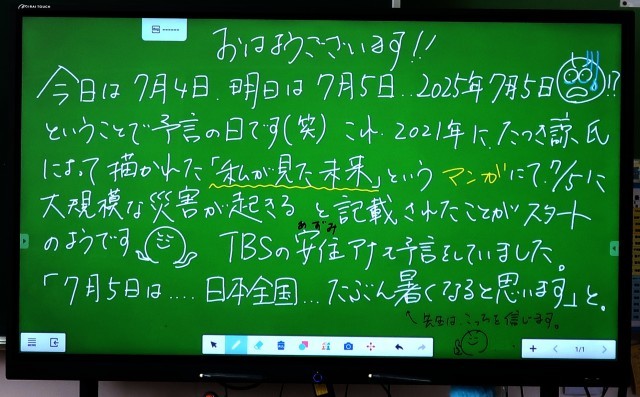 おはようございます!!
今日は7月4日.明日は7月5日..2025年7月5日!?
ということで予言の日です(笑) これ.2021年に.たつき諒氏
によって描かれた「私が見た未来」という マンガにて.7/5に
大規模な災害が起きる と記載されたことがスタート
のようです
あずみ
TBSの安住アナも予言をしていました。
「7月5日は....日本全国...たぶん暑くなると思います」と。
↑先生は.こっちを信じます。
1/1